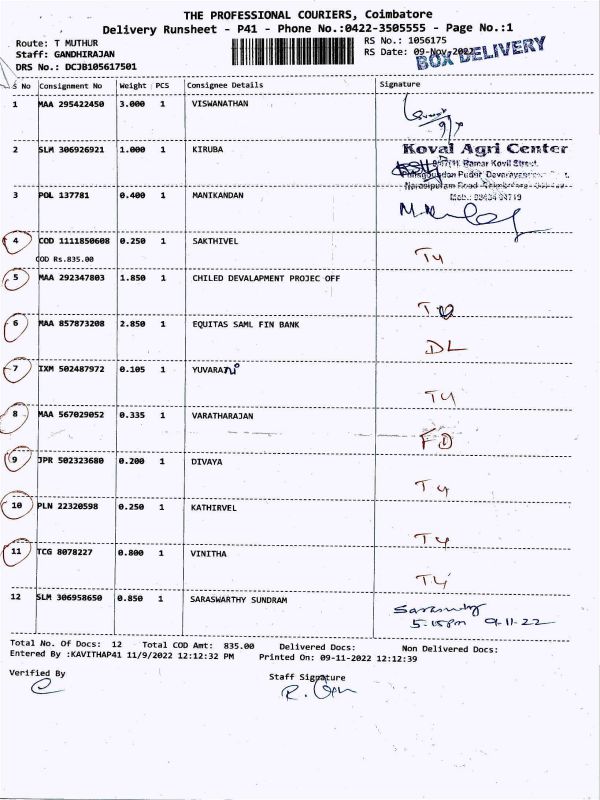 THE PROFESSIONAL COURIERS, Coimbatore
Delivery Runsheet - P41 - Phone No.:0422-3505555 - Page No.:1
Route: T MUTHUR
RS No.: 1056175
Staff: GANDHIRAJAN
RS Date: 09-Nov-2022
BOX DELIVERY
DRS No.: DCJB105617501
S No Consignment No Weight PCS Consignee Details Signature
1 MAA 295422450 3.000 1 VISWANATHAN
2 SLM 306926921 1.000 1 KIRUBA
Koval Agri Center
Ramar Kovil Street.
3 POL 137781 0.400 1 MANIKANDAN
4 COD 1111850608 0.250 1 SAKTHIVEL
COD Rs.835.00
T4
5 MAA 292347803 1.850 1 CHILED DEVALAPMENT PROJEC OFF
6 MAA 857873208 2.850 1 EQUITAS SAML FIN BANK
DL
7 IXM 502487972 0.105 1 YUVARANi
T4
8 MAA 567029052 0.335 1 VARATHARAJAN
FD
9 JPR 502323680 0.200 1 DIVAYA
T4
10 PLN 22320598 0.250 1 KATHIRVEL
T4
11 TCG 8078227 0.800 1 VINITHA
T4
12 SLM 306958650 0.850 1 SARASWARTHY SUNDRAM
5.15pm 9-11-22
Total No. Of Docs: 12 Total COD Amt: 835.00 Delivered Docs: Non Delivered Docs:
Entered By :KAVITHAP41 11/9/2022 12:12:32 PM Printed On: 09-11-2022 12:12:39
Verified By
Staff Signature